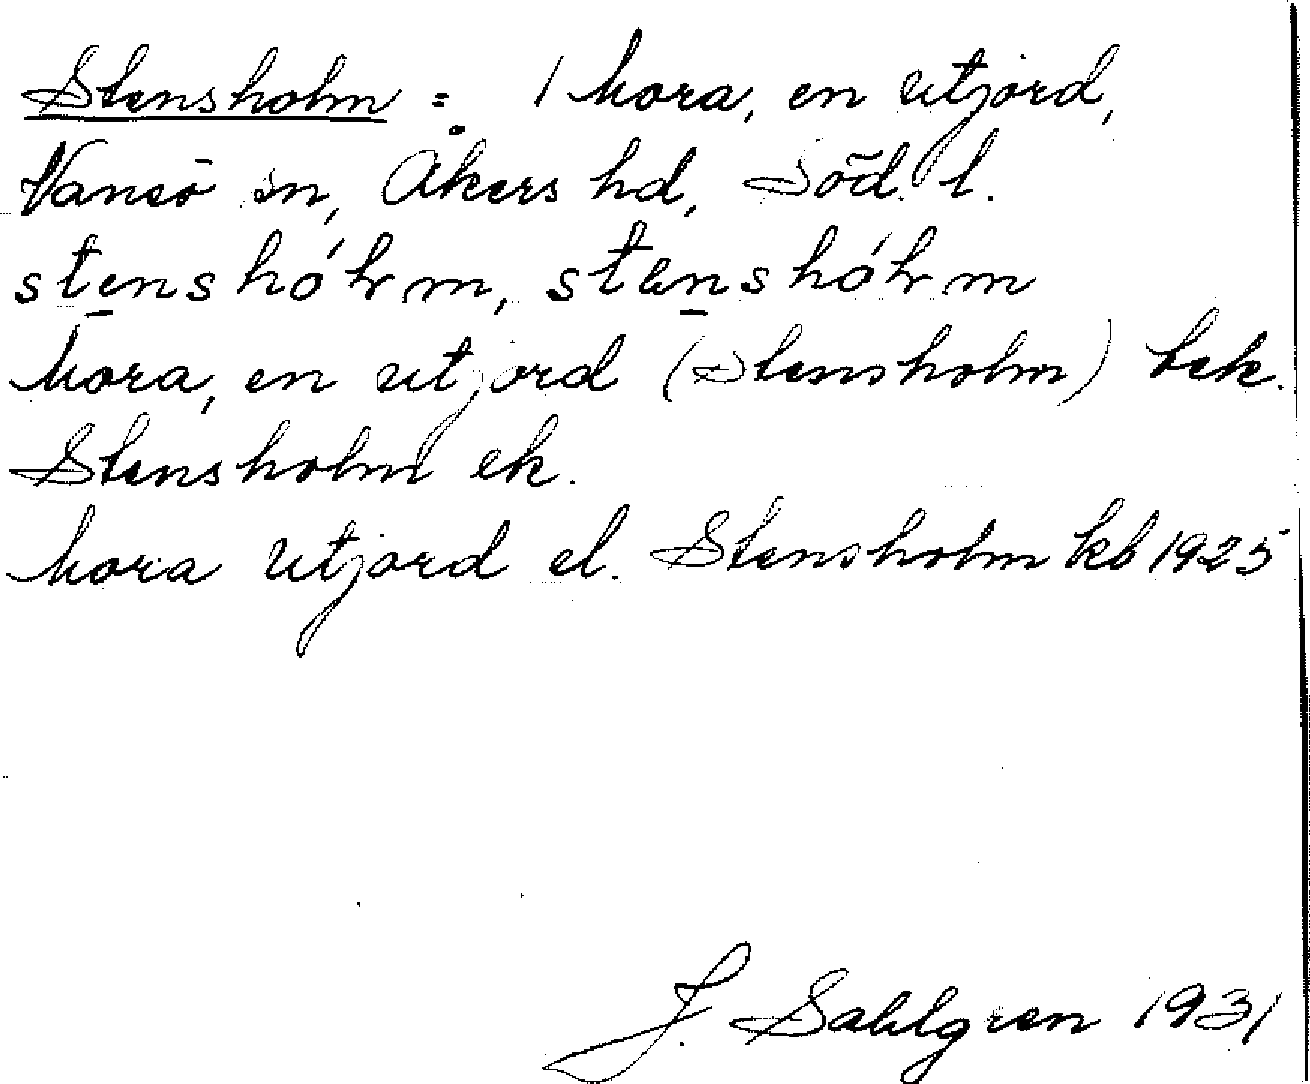 Stensholm = 1 Mora, en utjord,
Vansö sn, Åkers hd, Söd. l.
stenshólm, stenshólm
Mora, en utjord (Stensholm) bek.
Stensholm ek.
Mora utjord el. Stensholm kb 1925
J. Sahlgren 1931